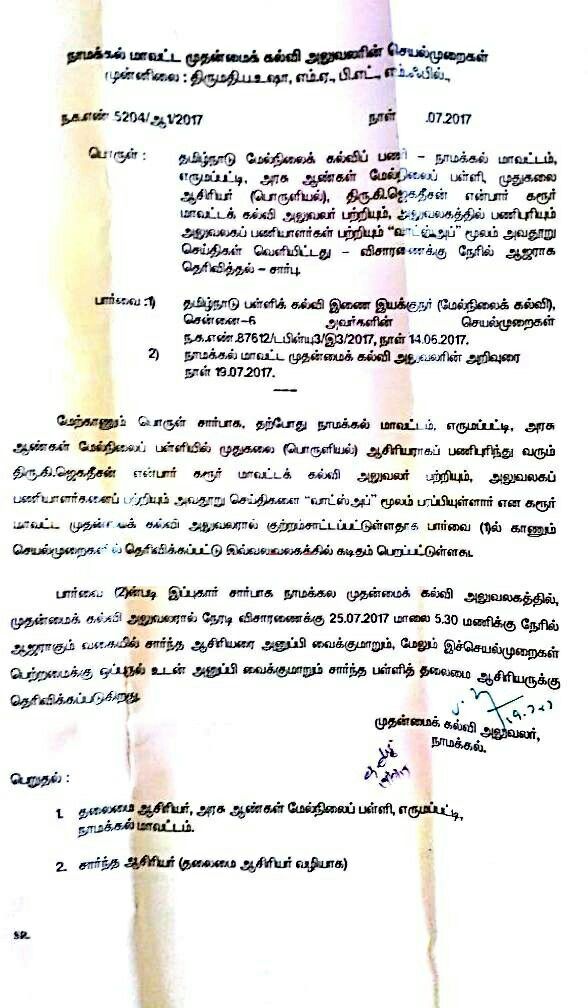 நாமக்கல் மாவட்ட முதன்மைக் கல்வி அலுவலரின் செயல்முறைகள்
முன்னிலை : திருமதி.ப.உஷா, எம்.ஏ., பி.எட்., எம்.ஃபில்.,
ந.க.எண்.5204/ஆ1/2017 நாள் .07.2017
பொருள் : தமிழ்நாடு மேல்நிலைக் கல்விப் பணி – நாமக்கல் மாவட்டம்,
எருமப்பட்டி, அரசு ஆண்கள் மேல்நிலைப் பள்ளி, முதுகலை
ஆசிரியர் (பொருளியல்), திரு.கி.ஜெகதீசன் என்பார் கரூர்
மாவட்டக் கல்வி அலுவலர் பற்றியும், அலுவலகத்தில் பணிபுரியும்
அலுவலகப் பணியாளர்கள் பற்றியும் "வாட்ஸ்அப்" மூலம் அவதூறு
செய்திகள் வெளியிட்டது – விசாரணைக்கு நேரில் ஆஜராக
தெரிவித்தல் – சார்பு.
பார்வை :1) தமிழ்நாடு பள்ளிக் கல்வி இணை இயக்குநர் (மேல்நிலைக் கல்வி),
சென்னை–6 அவர்களின் செயல்முறைகள்
ந.க.எண்.87612/டபிள்யு3/இ3/2017, நாள் 14.06.2017.
2) நாமக்கல் மாவட்ட முதன்மைக் கல்வி அலுவலரின் அறிவுரை
நாள் 19.07.2017.
மேற்காணும் பொருள் சார்பாக, தற்போது நாமக்கல் மாவட்டம், எருமப்பட்டி, அரசு
ஆண்கள் மேல்நிலைப் பள்ளியில் முதுகலை (பொருளியல்) ஆசிரியராகப் பணிபுரிந்து வரும்
திரு.கி.ஜெகதீசன் என்பார் கரூர் மாவட்டக் கல்வி அலுவலர் பற்றியும், அலுவலகப்
பணியாளர்களைப் பற்றியும் அவதூறு செய்திகளை "வாட்ஸ்அப்" மூலம் பரப்பியுள்ளார் என கரூர்
மாவட்ட முதன்மைக் கல்வி அலுவலரால் குற்றம்சாட்டப்பட்டுள்ளதாக பார்வை (1)ல் காணும்
செயல்முறைகளில் தெரிவிக்கப்பட்டு இவ்வலுவலகத்தில் கடிதம் பெறப்பட்டுள்ளது.
பார்வை (2)ன்படி இப்புகார் சார்பாக நாமக்கல் முதன்மைக் கல்வி அலுவலகத்தில்,
முதன்மைக் கல்வி அலுவலரால் நேரடி விசாரணைக்கு 25.07.2017 மாலை 5.30 மணிக்கு நேரில்
ஆஜராகும் வகையில் சார்ந்த ஆசிரியரை அனுப்பி வைக்குமாறும், மேலும் இச்செயல்முறைகள்
பெற்றமைக்கு ஒப்புதல் உடன் அனுப்பி வைக்குமாறும் சார்ந்த பள்ளித் தலைமை ஆசிரியருக்கு
தெரிவிக்கப்படுகிறது.
முதன்மைக் கல்வி அலுவலர்,
நாமக்கல்.
பெறுதல் :
1. தலைமை ஆசிரியர், அரசு ஆண்கள் மேல்நிலைப் பள்ளி, எருமப்பட்டி,
நாமக்கல் மாவட்டம்.
2. சார்ந்த ஆசிரியர் (தலைமை ஆசிரியர் வழியாக)
SR